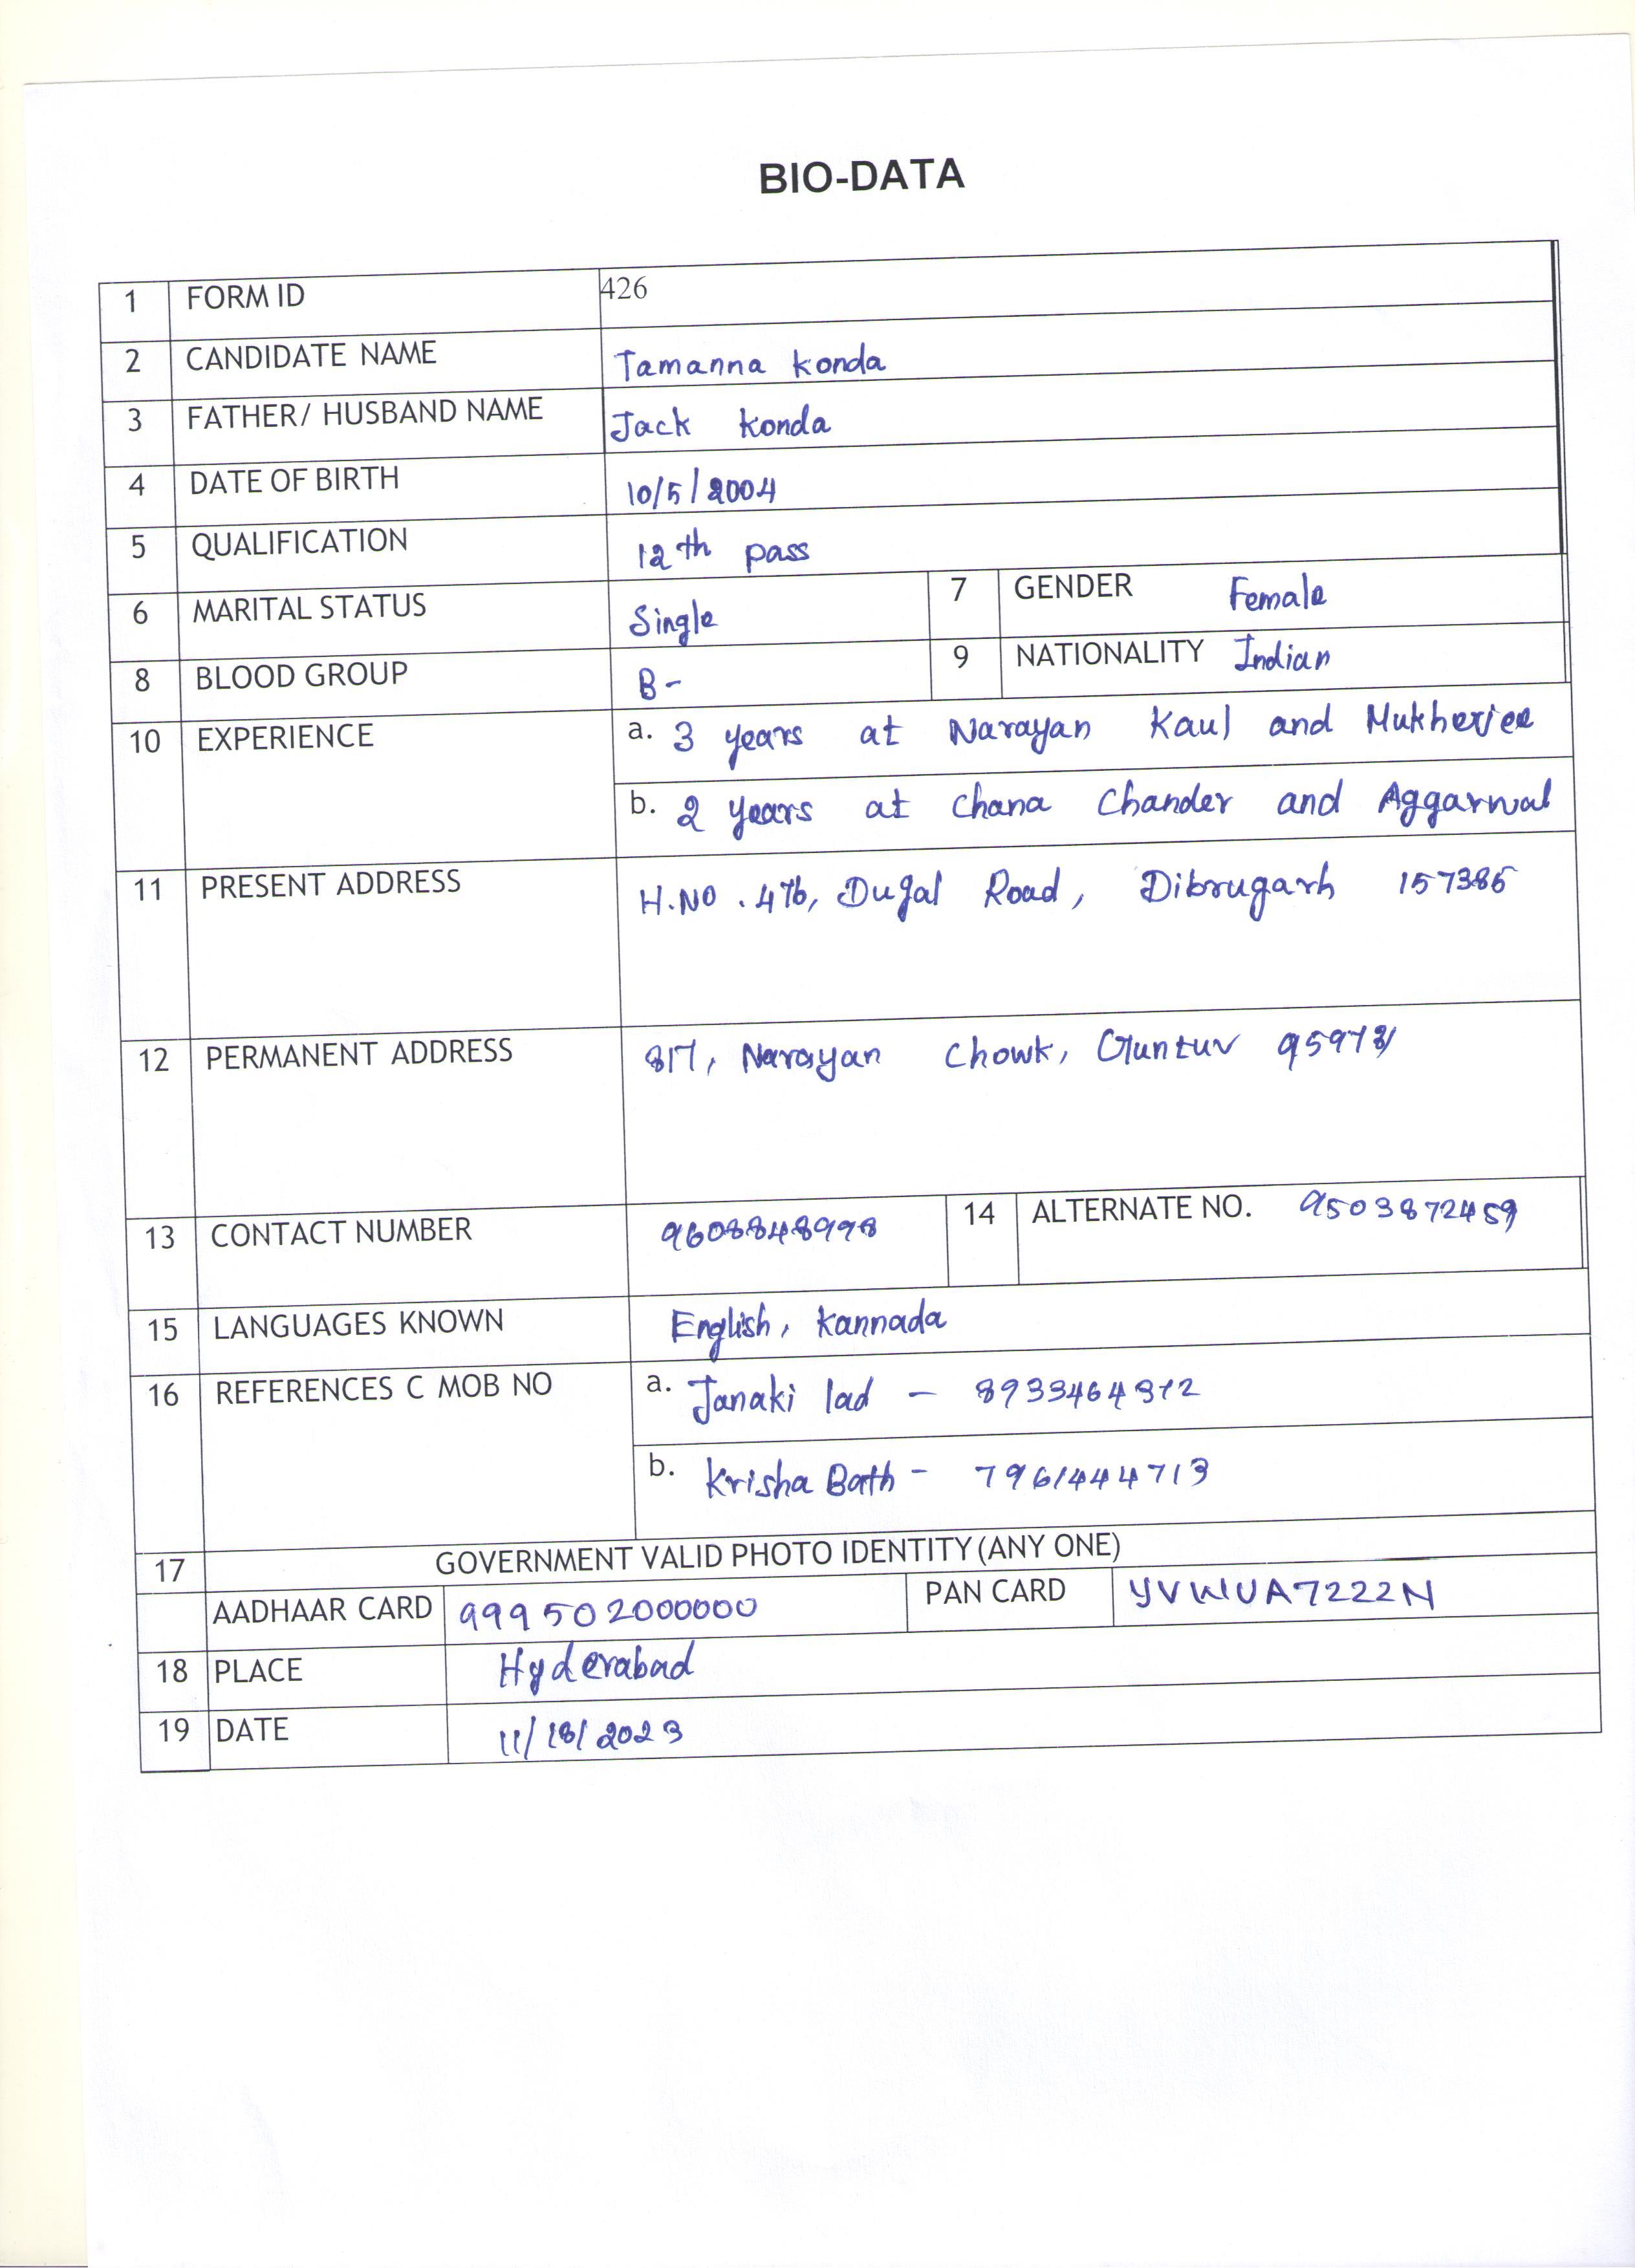 BIO-DATA
1 FORM ID 426
2 CANDIDATE NAME Tamanna Konda
3 FATHER/ HUSBAND NAME Jack Konda
4 DATE OF BIRTH 10/5/2004
5 QUALIFICATION 12th pass
6 MARITAL STATUS Single 7 GENDER Female
8 BLOOD GROUP B- 9 NATIONALITY Indian
10 EXPERIENCE a. 3 years at Narayan Kaul and Mukherjee
b. 2 years at Chana Chander and Aggarwal
11 PRESENT ADDRESS H.NO. 476, Dugal Road, Dibrugarh 157385
12 PERMANENT ADDRESS 817, Narayan Chowk, Guntur
13 CONTACT NUMBER 9608848998 14 ALTERNATE NO. 9503872459
15 LANGUAGES KNOWN English, Kannada
16 REFERENCES C MOB NO a. Janaki lad - 8933464312
b. Krisha Bath - 7961444713
17 GOVERNMENT VALID PHOTO IDENTITY (ANY ONE)
AADHAAR CARD 999502000000 PAN CARD YVWUA7222N
18 PLACE Hyderabad
19 DATE 11/18/2023